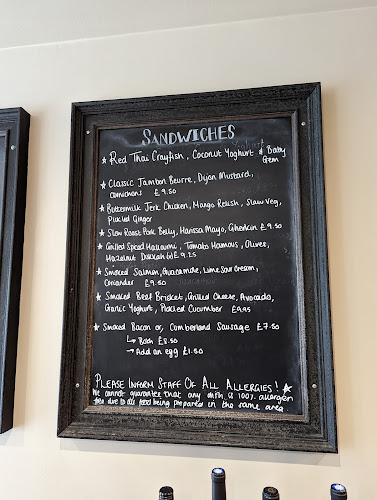 SANDWICHES
★ Red Thai Crayfish, Coconut Yoghurt & Baby
Gem
★ Classic Jambon Beurre, Dijon Mustard,
Cornichons £9.50
★ Buttermilk Jerk Chicken, Mango Relish, Slaw Veg,
Pickled Ginger
★ Slow Roast Pork Belly, Harissa Mayo, Gherkin £9.50
★ Grilled Spiced Halloumi, Tomato Hummus, Olives,
Hazelnut Dukkah £9.25
★ Smoked Salmon, Guacamole, Lime Sour Cream,
Coriander £9.50
★ Smoked Beef Brisket, Grilled Cheese, Avocado,
Garlic Yoghurt, Pickled Cucumber £9.95
★ Smoked Bacon or, Cumberland Sausage £7.50
↳ Both £8.50
→ Add an egg £1.50
PLEASE INFORM STAFF OF ALL ALLERGIES! ★
We cannot guarantee that any dish is 100% allergen
free due to all food being prepared in the same area